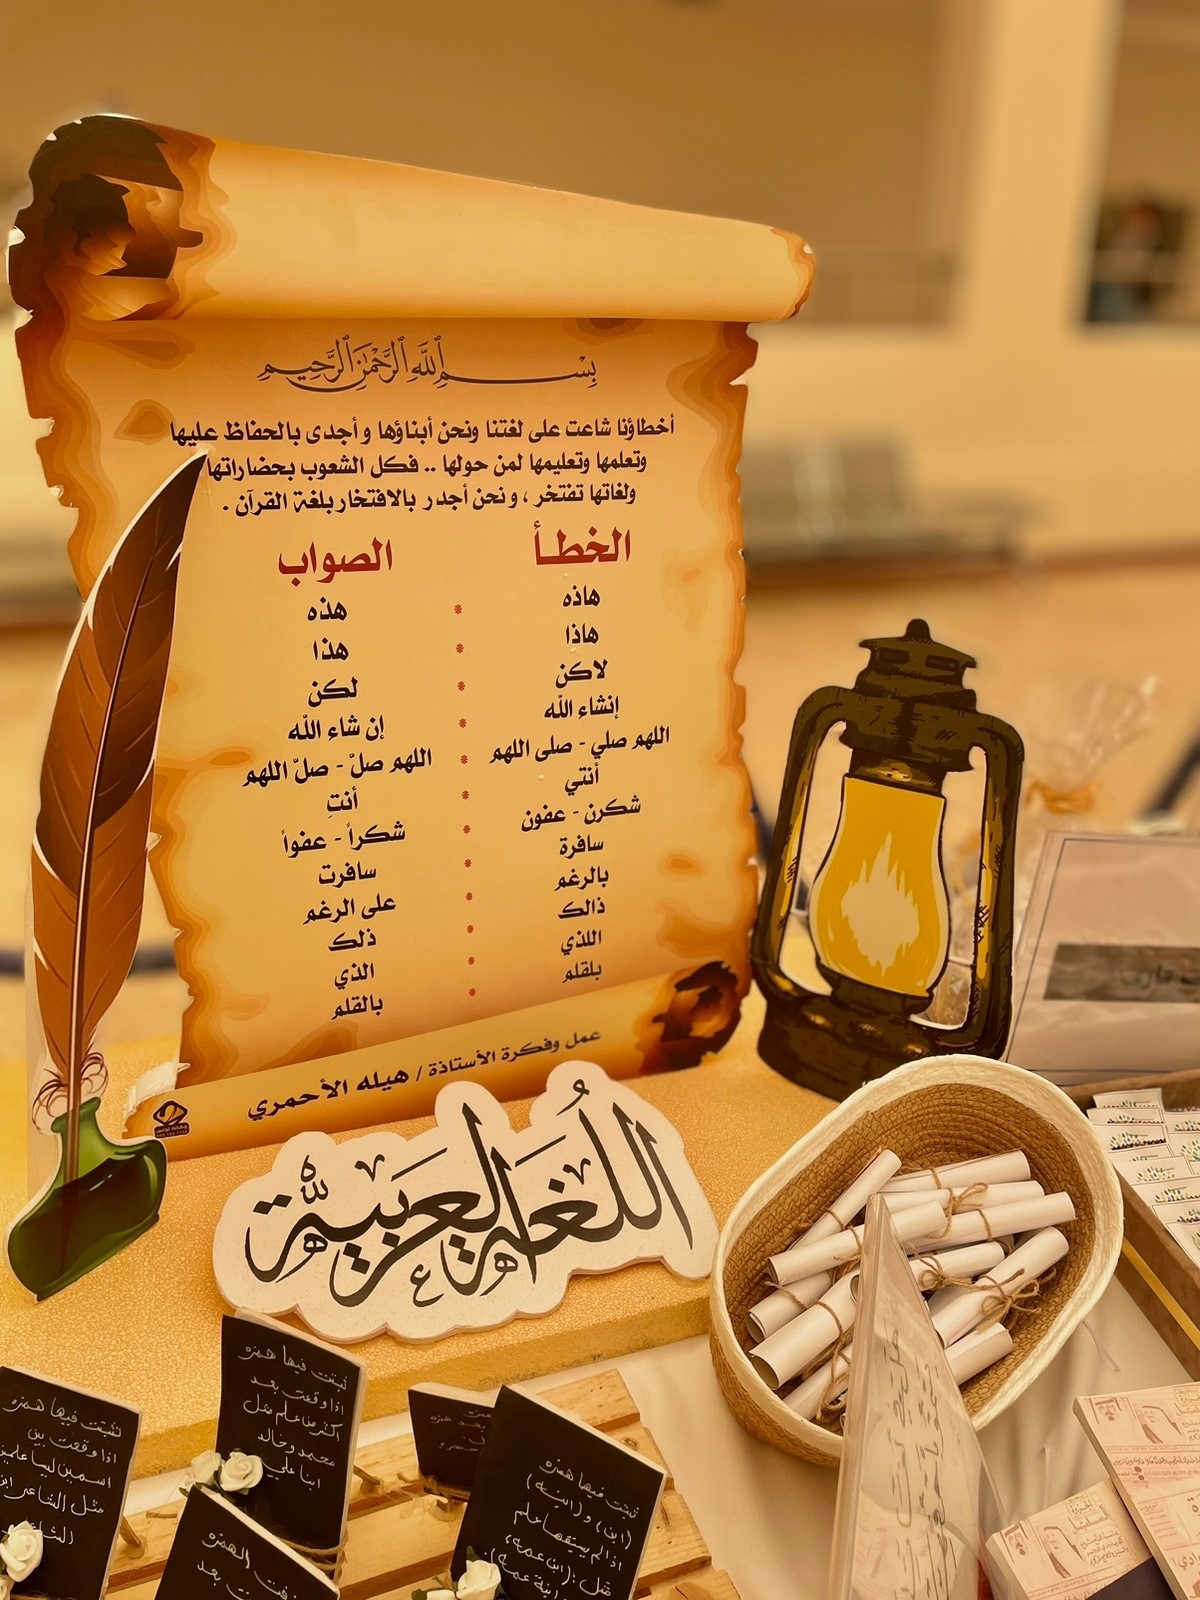 بسم الله الرحمن الرحيم
أخطاؤنا شاعت على لغتنا ونحن أبناؤها وأجدى بالحفاظ عليها
وتعلمها وتعليمها لمن حولها .. فكل الشعوب بحضاراتها
ولغاتها تفتخر ، ونحن أجدر بالافتخار بلغة القرآن .
الخطأ الصواب
هاذه * هذه
هاذا * هذا
لاكن * لكن
إنشاء الله * إن شاء الله
اللهم صلي - صلى اللهم * اللهم صلّ - صلّ اللهم
أنتي * أنتِ
شكرن - عفون * شكراً - عفواً
سافرة * سافرت
بالرغم * على الرغم
ذالك * ذلك
اللذي * الذي
بلقلم * بالقلم
عمل وفكرة الأستاذة / هيله الأحمري
اللغة العربية
ثبتت فيها همزه
اذا وقعت بعد
اكثر من علم مثل
محمد وخالد
ابنا علي
تثبت فيها همزه
اذا وقعت بين
اسمين ليسا علمين
مثل الشاعر ابن
الشاعر
ثبتت فيها همزه
(ابن) و(ابنه)
اذا لم يسبقها علم
مثل: (ابن عمه،
ابنة عمه).
الهمزه
بعد